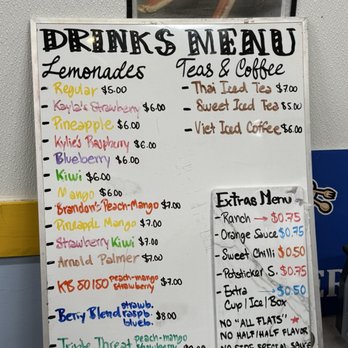 DRINKS MENU
Lemonades
- Regular $5.00
- Kayla's Strawberry $6.00
- Pineapple $6.00
- Kylie's Raspberry $6.00
- Blueberry $6.00
- Kiwi $6.00
- Mango $6.00
- Brandon's Peach-Mango $7.00
- Pineapple Mango $7.00
- Strawberry Kiwi $7.00
- Arnold Palmer $7.00
- KB 50/50 peach-mango strawberry $7.00
- Berry Blend strawb. raspb. blueb. $8.00
Triple Threat peach-mango strawberry
Teas & Coffee
- Thai Iced Tea $7.00
- Sweet Iced Tea $5.00
- Viet Iced Coffee $6.00
Extras Menu
- Ranch → $0.75
- Orange Sauce $0.75
- Sweet Chili $0.50
- Potsticker S. $0.75
- Extra → $0.50
Cup/Ice/Box
NO "ALL FLATS"
NO HALF/HALF FLAVOR
NO SIDE SPECIAL SAUCE